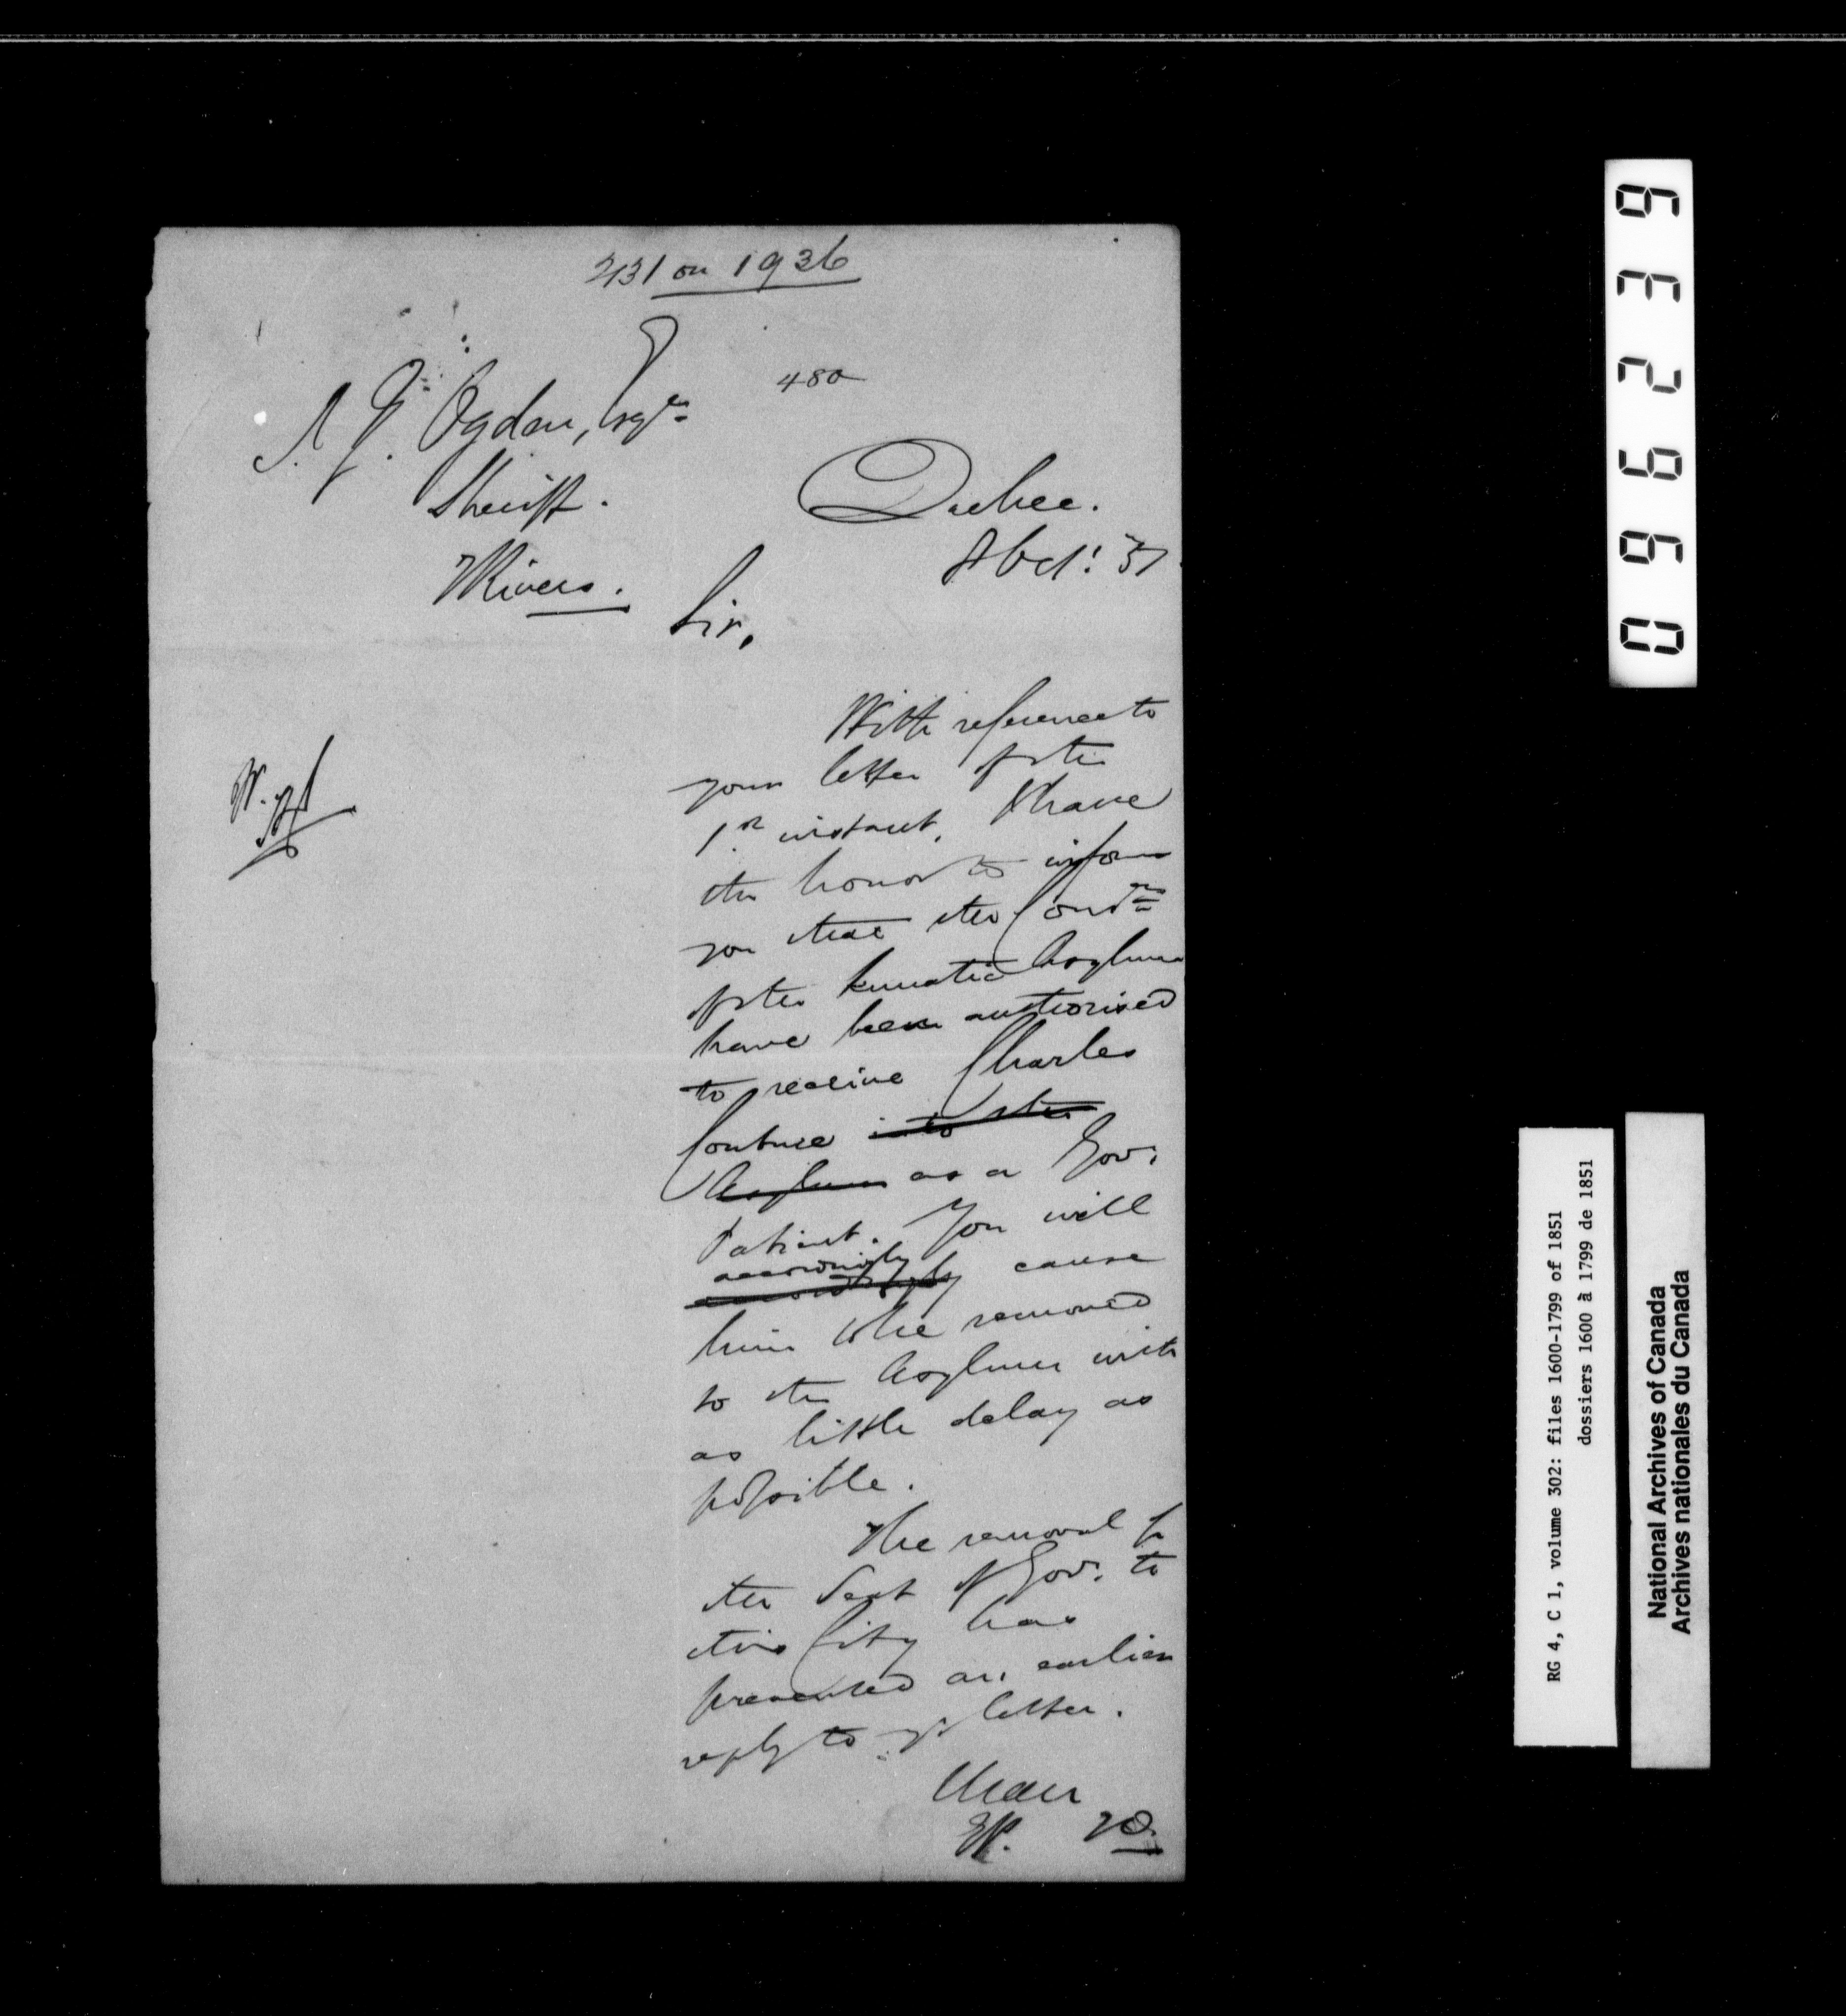 231 on 1936
480
I. G. Ogden, Esqre
Sheriff.
3Rivers.
Quebec.
8 Oct: 51
Sir,
With reference to
your letter of the
1st instant, I have
the honor to inform
you that the Comrs
of the Lunatic Asylum
have been authorised
to receive Charles
Couture into the
Asylum as a Gov:
Patient. You will
accordingly
accordingly cause
him to be removed
to the Asylum with
as little delay as
possible.
The removal of
the Seat of Gov: to
this City has
prevented an earlier
reply to yr letter.
096239
RG 4, C 1, volume 302: files 1600-1799 of 1851
dossiers 1600 à 1799 de 1851
National Archives of Canada
Archives nationales du Canada